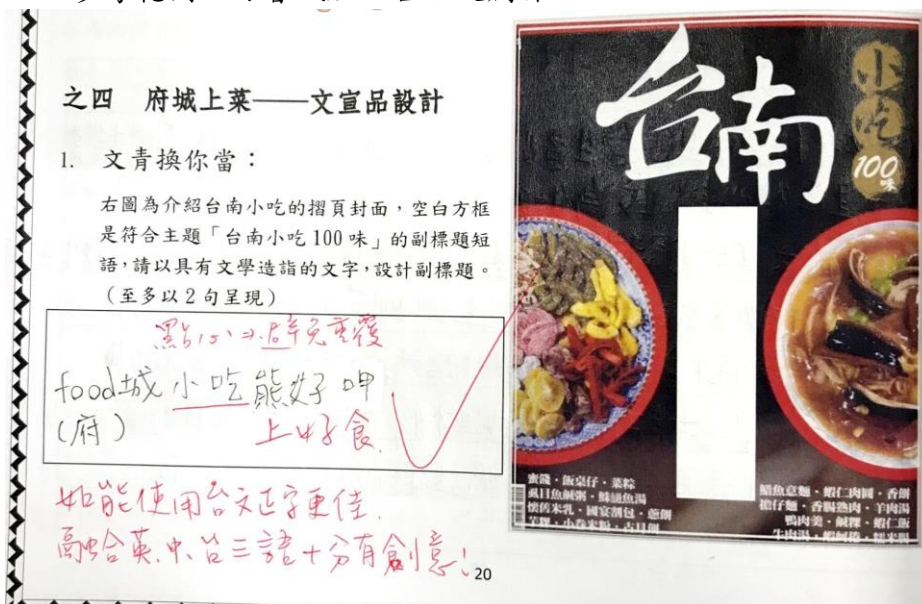 之四 府城上菜——文宣品設計
1. 文青換你當：
右圖為介紹台南小吃的摺頁封面，空白方框
是符合主題「台南小吃100味」的副標題短
語，請以具有文學造詣的文字，設計副標題。
（至多以2句呈現）
點心→避免重複
food城小吃熊好呷
(府)
上好食
如能使用台文正字更佳.
融合英.中.台三語十分有創意！
20
台南
小吃
100味
蜜餞・飯桌仔・菜粽
虱目魚鹹粥・
懷舊米乳・國宴割包・蔥餅
小卷米粉・古早
鱔魚意麵・蝦仁肉圓・香餅
擔仔麵・香腸熟肉・羊肉湯
鴨肉羹・鹹粿・蝦仁飯
牛肉湯・蝦捲・糯米腸